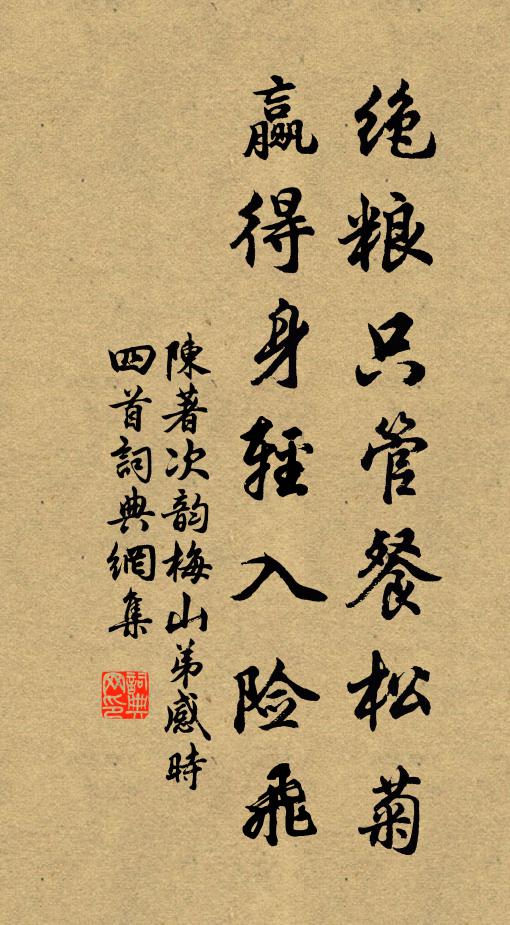 绝粮只管餐松菊
赢得身輕入险飛
陳著次韵梅山弟感時
四首詞典網集
詞典
网印